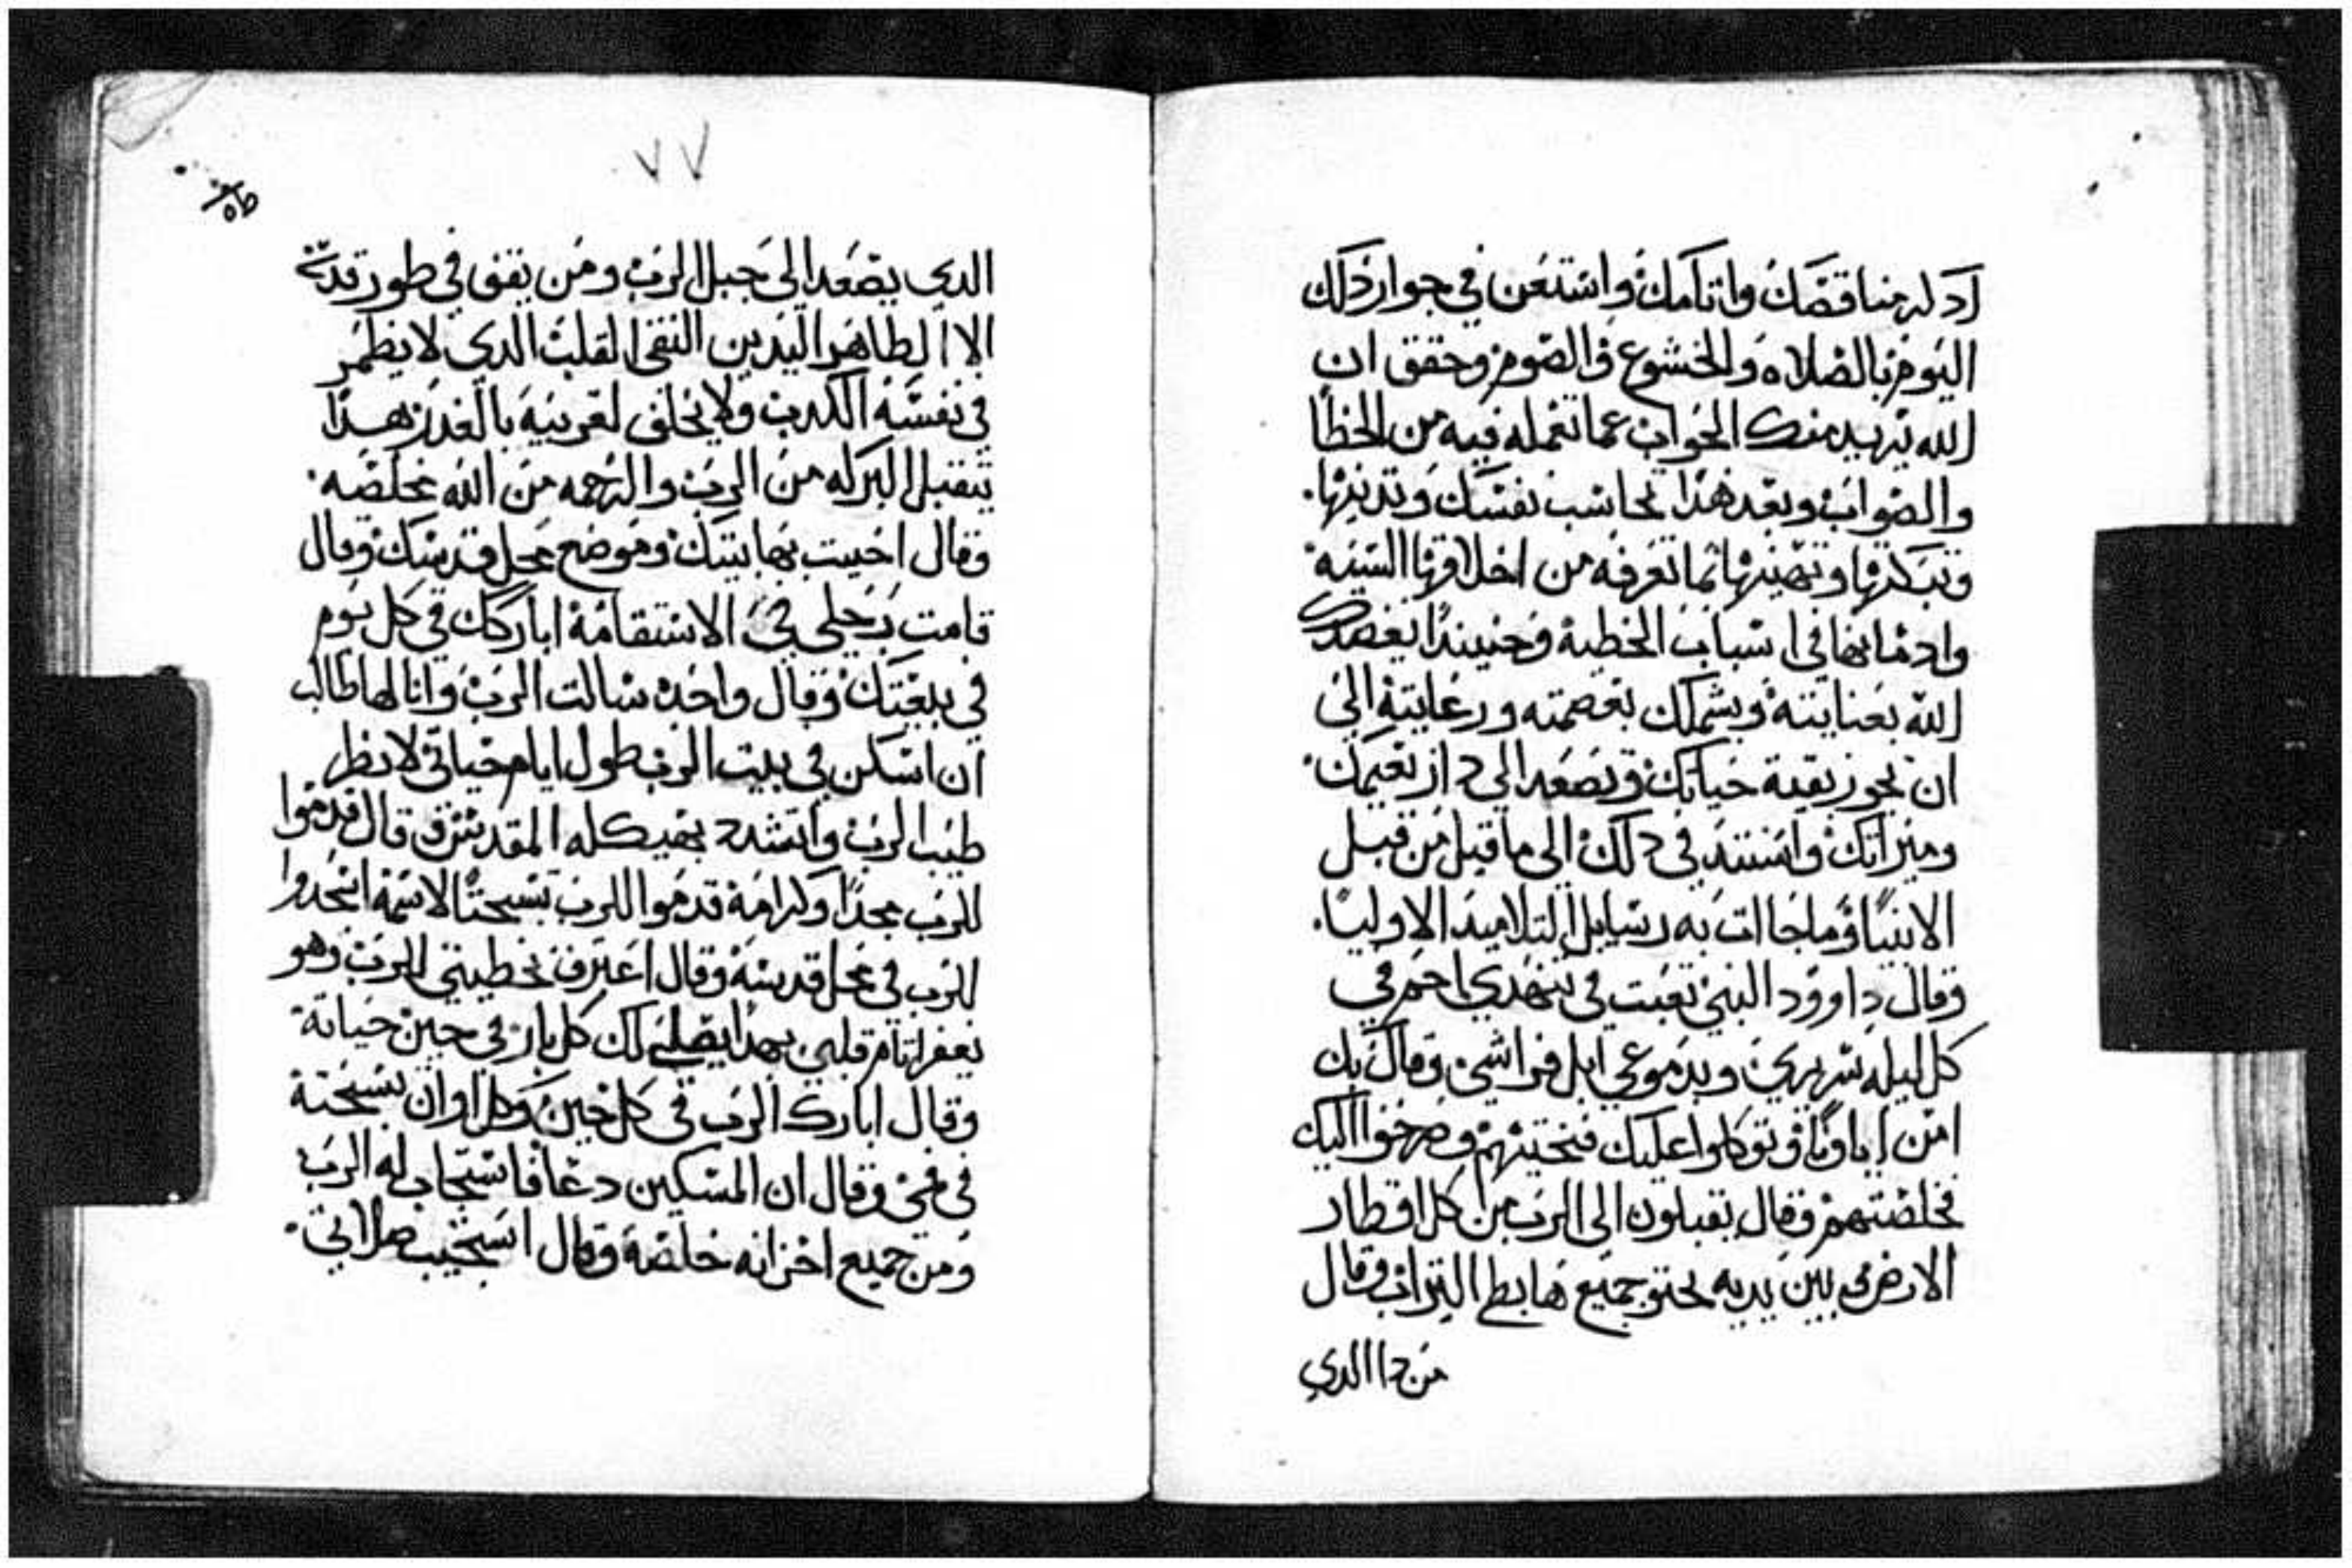 اد له مناقضك واتامك واستعن في جوار ذلك
اليوم بالصلاه والخشوع والصوم وحقق ان
الله يريد منك الجواب عما تعمله فيه من الخطا
والصواب وبعد هذا تحاسب نفسك وتدينها.
وتبكتها وتهينها بما تعرفه من اخلاقها السيه
وادمانها في اسباب الخطيه وحينيدا يعضدك
الله بعنايته ويشملك بعصمته ورعايته الي
ان تجوز بقية حياتك وتصعد الي دار نعيمك.
وميراتك واستند في دلك الي ما قيل من قبل
الانبيا وما جاات به رسايل التلاميد الاوليا.
وقال داوود النبي تعبت في تنهدي احم في
كل ليله سريري وبدموعي ابل فراشي وقال بك
امن اباونا وتوكلوا عليك فنجيتهم وصرخوا اليك
فخلصتهم وقال يقبلون الي الرب من كل اقطار
الارض وبين يديه يحتو جميع هابطي التراب وقال
من دا الدي
٧٧
الدي يصعد الي جبل الرب ومن يقف في طور قدسه
الا الطاهر اليدين النقي القلب الدي لا يظمر
في نفسه الكدب ولا يحلف لقريبه بالغدر هدا
يتقبل البركه من الرب والرحمه من الله مخلصه.
وقال احببت بها بيتك وموضع محل قدسك وقال
قامت رجلي في الاستقامة اباركك في كل يوم
في بيعتك وقال واحده سالت الرب وانا لها طالب
ان اسكن في بيت الرب طول ايام حياتي لانظر
طيب الرب واتشدد بهيكله المقدس وقال قدموا
للرب مجدا وكرامة قدموا للرب تسبحتا لاسمه اسجدوا
للرب في محل قدسه وقال اعترف بخطيتي للرب وهو
يغفر اتام قلبي بهدا يصلي لك كل بار في حين حياتة
وقال ابارك الرب في كل حين وكل اوان تسبحتة
في فمي وقال ان المسكين دعا فاستجاب له الرب
ومن جميع احزانه خلصة وقال استجيب صلاتي.